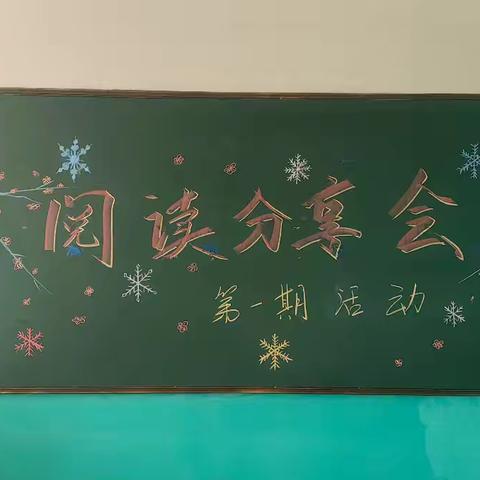 阅读分享会
第一期活动